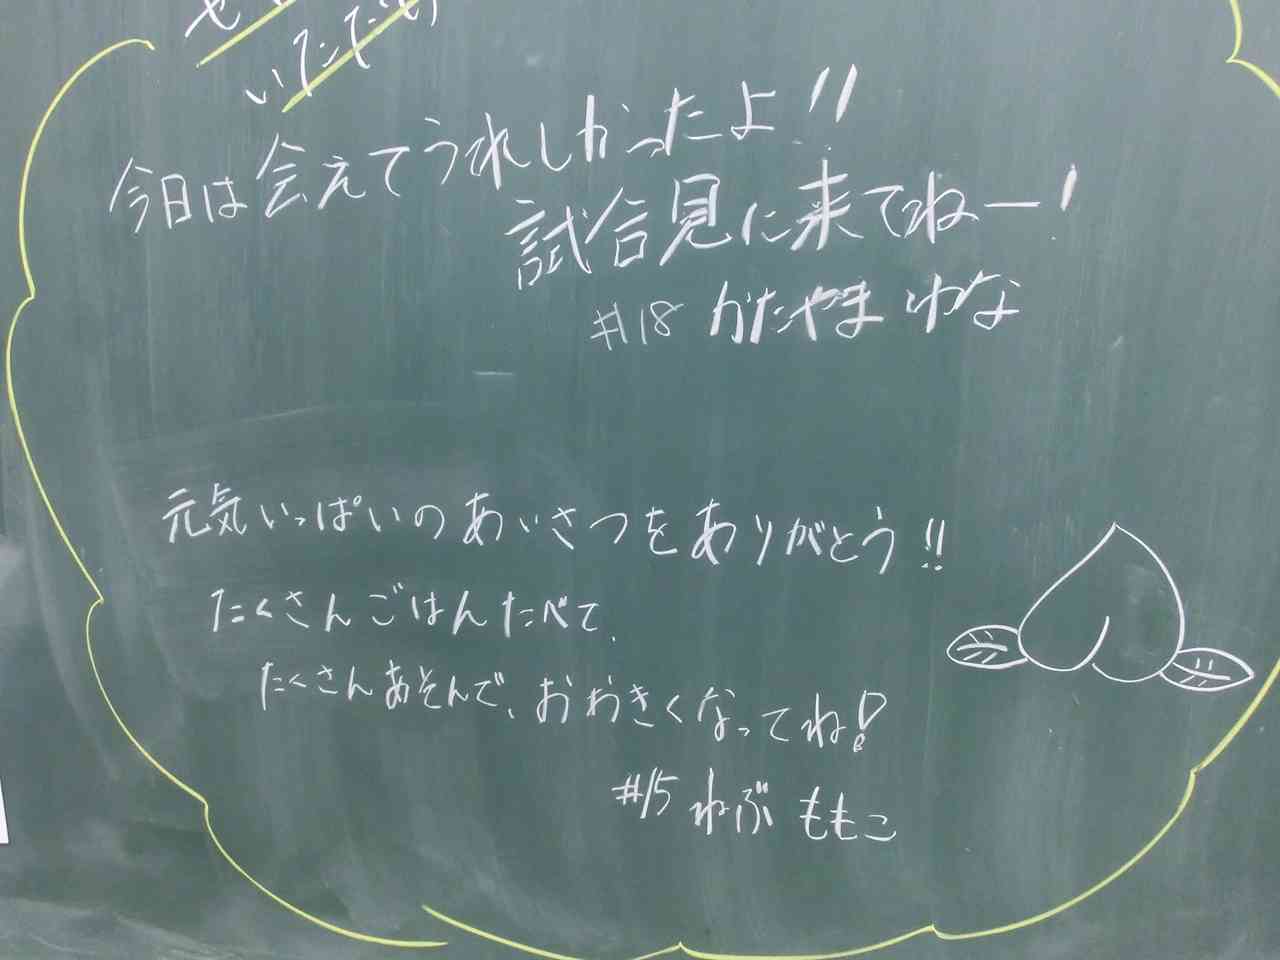 いただき
今日は会えてうれしかったよ!!
試合見に来てねー!
#18 かたやま ゆな
元気いっぱいのあいさつをありがとう!!
たくさんごはんたべて、
たくさんあそんで、おおきくなってね!
#15 ねぶ ももこ